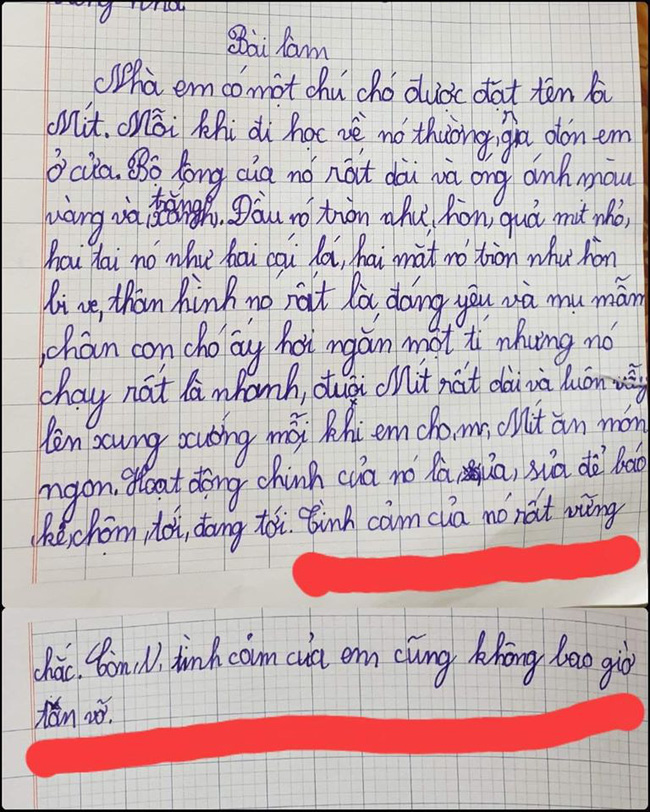 Bài làm
Nhà em có một chú chó được đặt tên là
Mít. Mỗi khi đi học về nó thường, gia đón em
ở cửa. Bộ lông của nó rất dài và ong ánh màu
vàng và trắng. Đầu nó tròn như, hòn, quả mít nhỏ,
hai tai nó như hai cái lá, hai mắt nó tròn như hòn
bi ve, thân hình nó rất là đáng yêu và mụ mẫm
, chân con chó ấy hơi ngắn một tí nhưng nó
chạy rất là nhanh, đuôi Mít rất dài và luôn vẫy
lên xung xướng mỗi khi em cho, mr, Mít ăn món
ngon. Hoạt động chính của nó là, sủa, sủa để báo
kẻ, chộm, tới, đang tới. Tình cảm của nó rất vững
chắc. Còn, N, tình cảm của em cũng không bao giờ
tan vỡ.